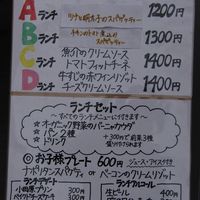 A ランチ ツナと明太子のスパゲッティー 1200円
B ランチ チキンのトマト煮込み スパゲッティー 1300円
C ランチ 魚介のクリームソース トマトフィットチーネ 1400円
D ランチ 牛すじの赤ワインリゾット チーズクリームソース 1400円
ランチセット
～すべてのランチメニューに付きます～
☆オーガニック野菜のバーニャカウダ
☆パン2種
☆ドリンク
+300円で前菜3種
盛り付けできます
◎お子様プレート 600円 ジュース・アイス付き
ナポリタンパスタ or ベーコンのクリームリゾット
ランチデザート
小田原プリン 300円
ベイクドチーズケーキ
ランチアルコール
生ビール 400円